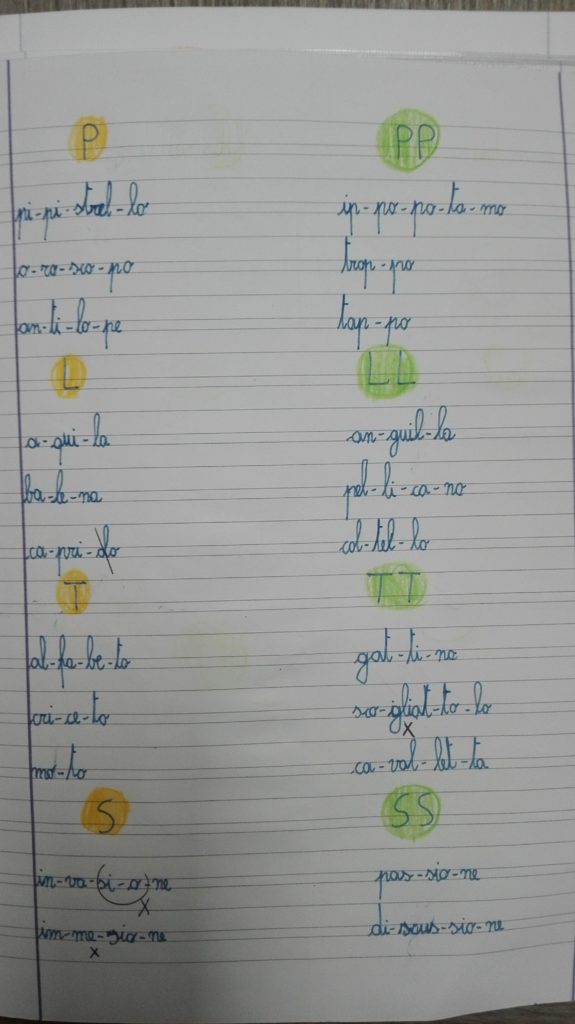 P PP
pi-pi-strel-lo ip-po-po-ta-mo
o-ro-sco-po trop-po
an-ti-lo-pe tap-po
L LL
a-qui-la an-guil-la
ba-le-na pel-li-ca-no
ca-pri-olo col-tel-lo
T TT
al-fa-be-to gat-ti-no
cri-ce-to sco-igliat-to-lo
mo-to ca-val-let-ta
S SS
in-va-si-o-ne pas-sio-ne
im-me-sio-ne di-scus-sio-ne